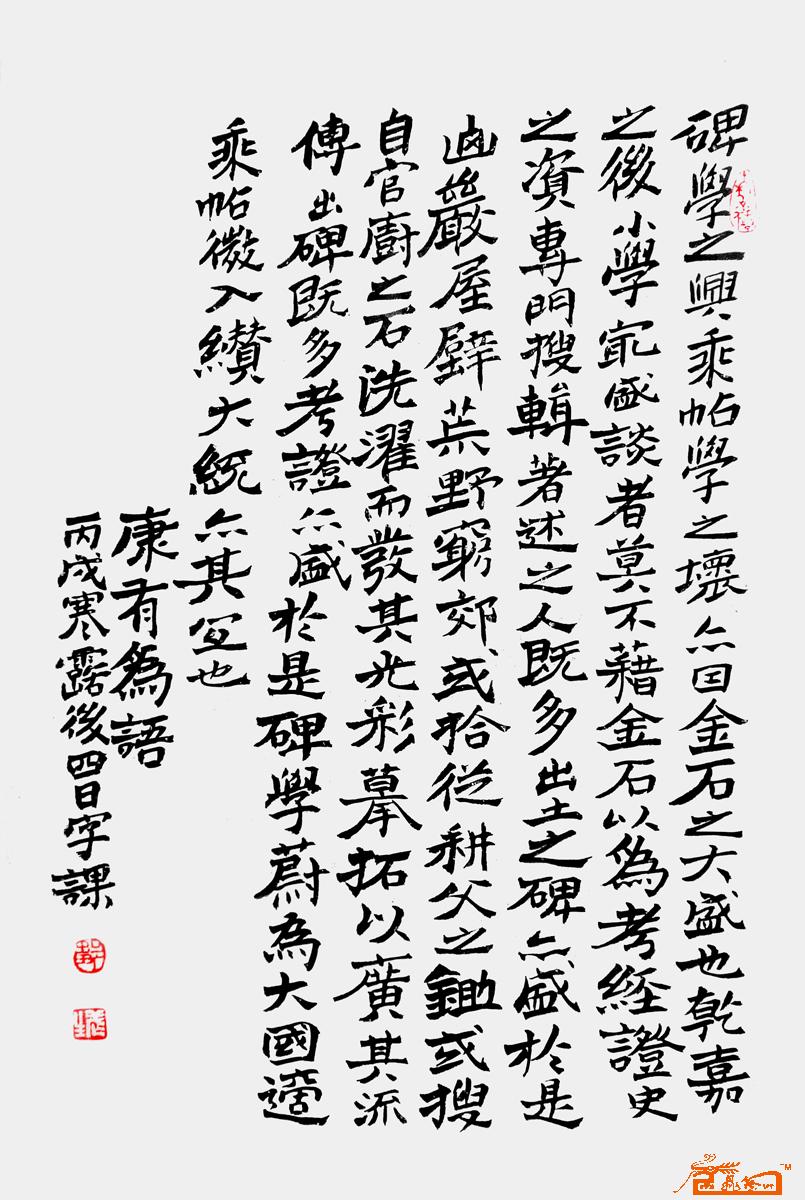 碑學之興乘帖學之壞亦因金石之大盛也乾嘉
之後小學家盛談者莫不藉金石以為考經證史
之資專門搜輯著述之人既多出土之碑亦盛於是
幽巖屋壁荒野窮郊或拾從耕父之鋤或搜
自官廚之石洗濯而發其光彩摹拓以廣其流
傳出碑既多考證亦盛於是碑學蔚為大國適
乘帖微入纘大統亦其宜也
康有為語
丙戌寒露後四日字課